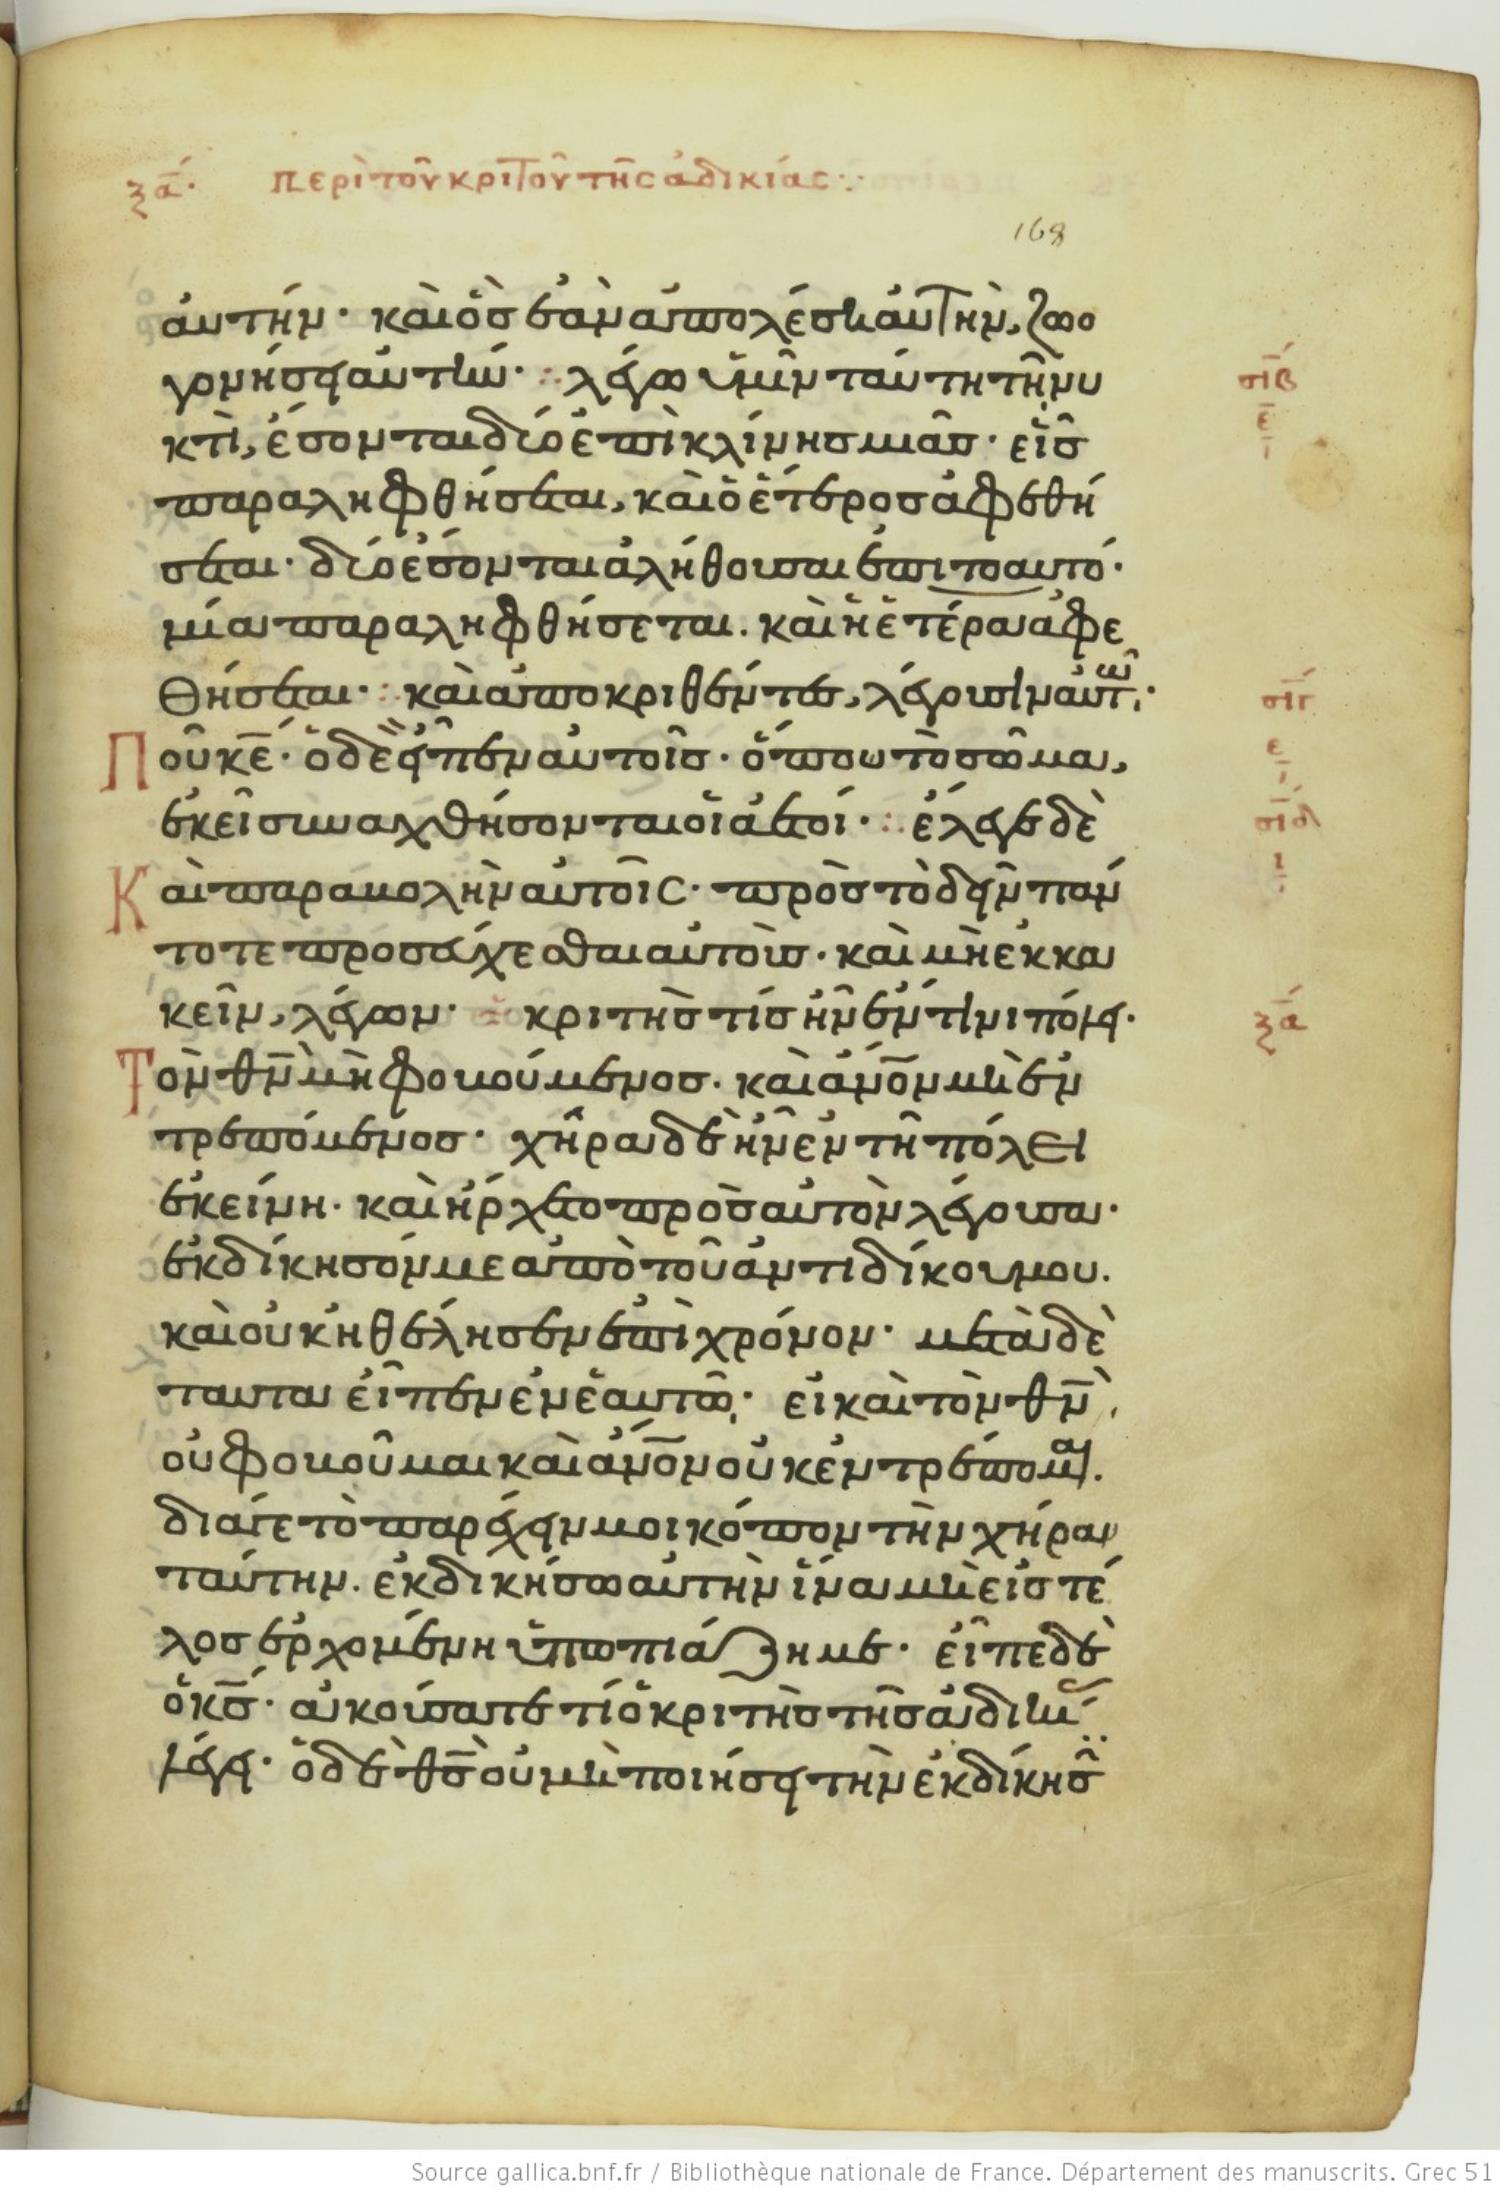 ξα· περὶ τοῦ κριτοῦ τῆς ἀδικίας
168
αυτήν· καὶ ὃς ἐὰν ἀπολέση αὐτὴν, ζωο
γονήσει αυτήν· λέγω ὑμῖν ταύτη τῆ νυ
κτὶ, έσονται δύο ἐπὶ κλίνης μιᾶς· εἷς
παραληφθήσεται, καὶ ὁ ἕτερος ἀφεθή
σεται· δύο έσονται ἀλήθουσαι ἐπιτοαυτό·
μία παραληφθήσεται. καὶ ἡ ἑτέρα ἀφε
θήσεται· καὶ ἀποκριθέντες, λέγουσιν αὐτῶ·
Ποῦ κε· ὁ δὲ εἶπεν αυτοῖς· ὅπου τὸ σῶμα,
ἐκεῖ συναχθήσονται οἱ ἀετοί· έλεγε δὲ
Καὶ παραβολὴν αυτοῖς· πρὸς τὸ δεῖν πάν
τοτε προσεύχεσθαι αὐτοὺς· καὶ μὴ ἐκκα
κεῖν, λέγων· κριτὴς τίς ἦν έν τινι πόλει·
Τὸν θν μὴ φοβούμενος. καὶ ἀνον μὴ ἐν
τρεπόμενος· χῆρα δὲ ἦν ἐν τῆ πόλει
ἐκείνη· καὶ ἤρχετο πρὸς αὐτὸν λέγουσα·
ἐκδίκησόν με ἀπὸ τοῦ ἀντιδίκου μου.
καὶ οὐκ ἠθέλησεν ἐπὶ χρόνον· μετὰ δὲ
ταυτα εἶπεν ἐν ἑαυτῶ· εἰ καὶ τὸν θν
οὐ φοβοῦμαι καὶ ἀνον οὐκ ἐντρέπομαι.
διά γε τὸ παρέχειν μοι κόπον τὴν χήραν
ταύτην. ἐκδικήσω αυτὴν ἵνα μὴ εἰς τέ
λος ἐρχομένη ὑπωπιάζη με· εἶπε δὲ
ὁ κς· ἀκούσατε τί ὁ κριτὴς τῆς ἀδικίας
λέγει· ὁ δὲ θς οὐ μὴ ποιήσει τὴν ἐκδίκησ
σιβ
ε
σιγ
ε
σιδ
ι
ξα
Source gallica.bnf.fr / Bibliothèque nationale de France. Département des manuscrits. Grec 51